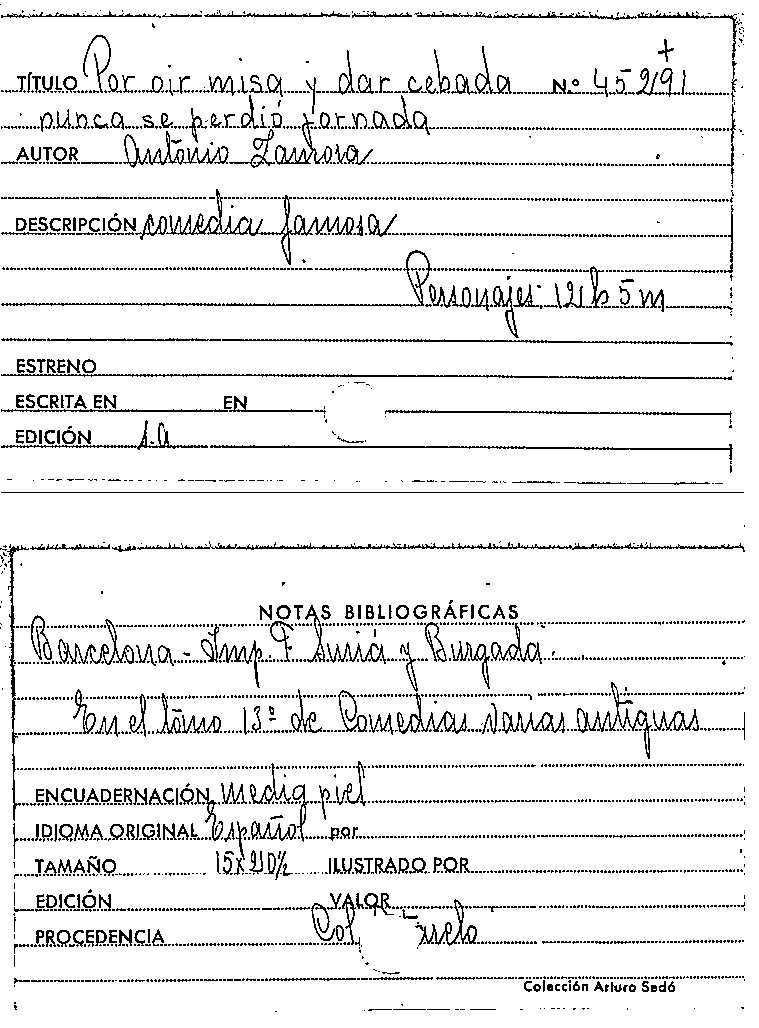 TÍTULO Por oir misa y dar cebada N.º 45291
nunca se perdió jornada
AUTOR Antonio Zamora
DESCRIPCIÓN comedia famosa
Personajes: 12 h 5 m
ESTRENO
ESCRITA EN EN
EDICIÓN s.a
NOTAS BIBLIOGRÁFICAS
Barcelona - Imp. F. Suriá y Burgada.
En el tomo 13º de Comedias varias antiguas
ENCUADERNACIÓN media piel
IDIOMA ORIGINAL Español por
TAMAÑO 15x20½ ILUSTRADO POR
EDICIÓN VALOR
PROCEDENCIA Col
Colección Arturo Sedó